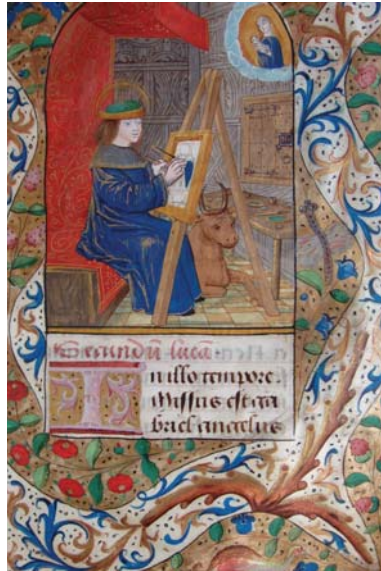 Secundū lucā
In illo tempore.
Missus est ga
briel angelus